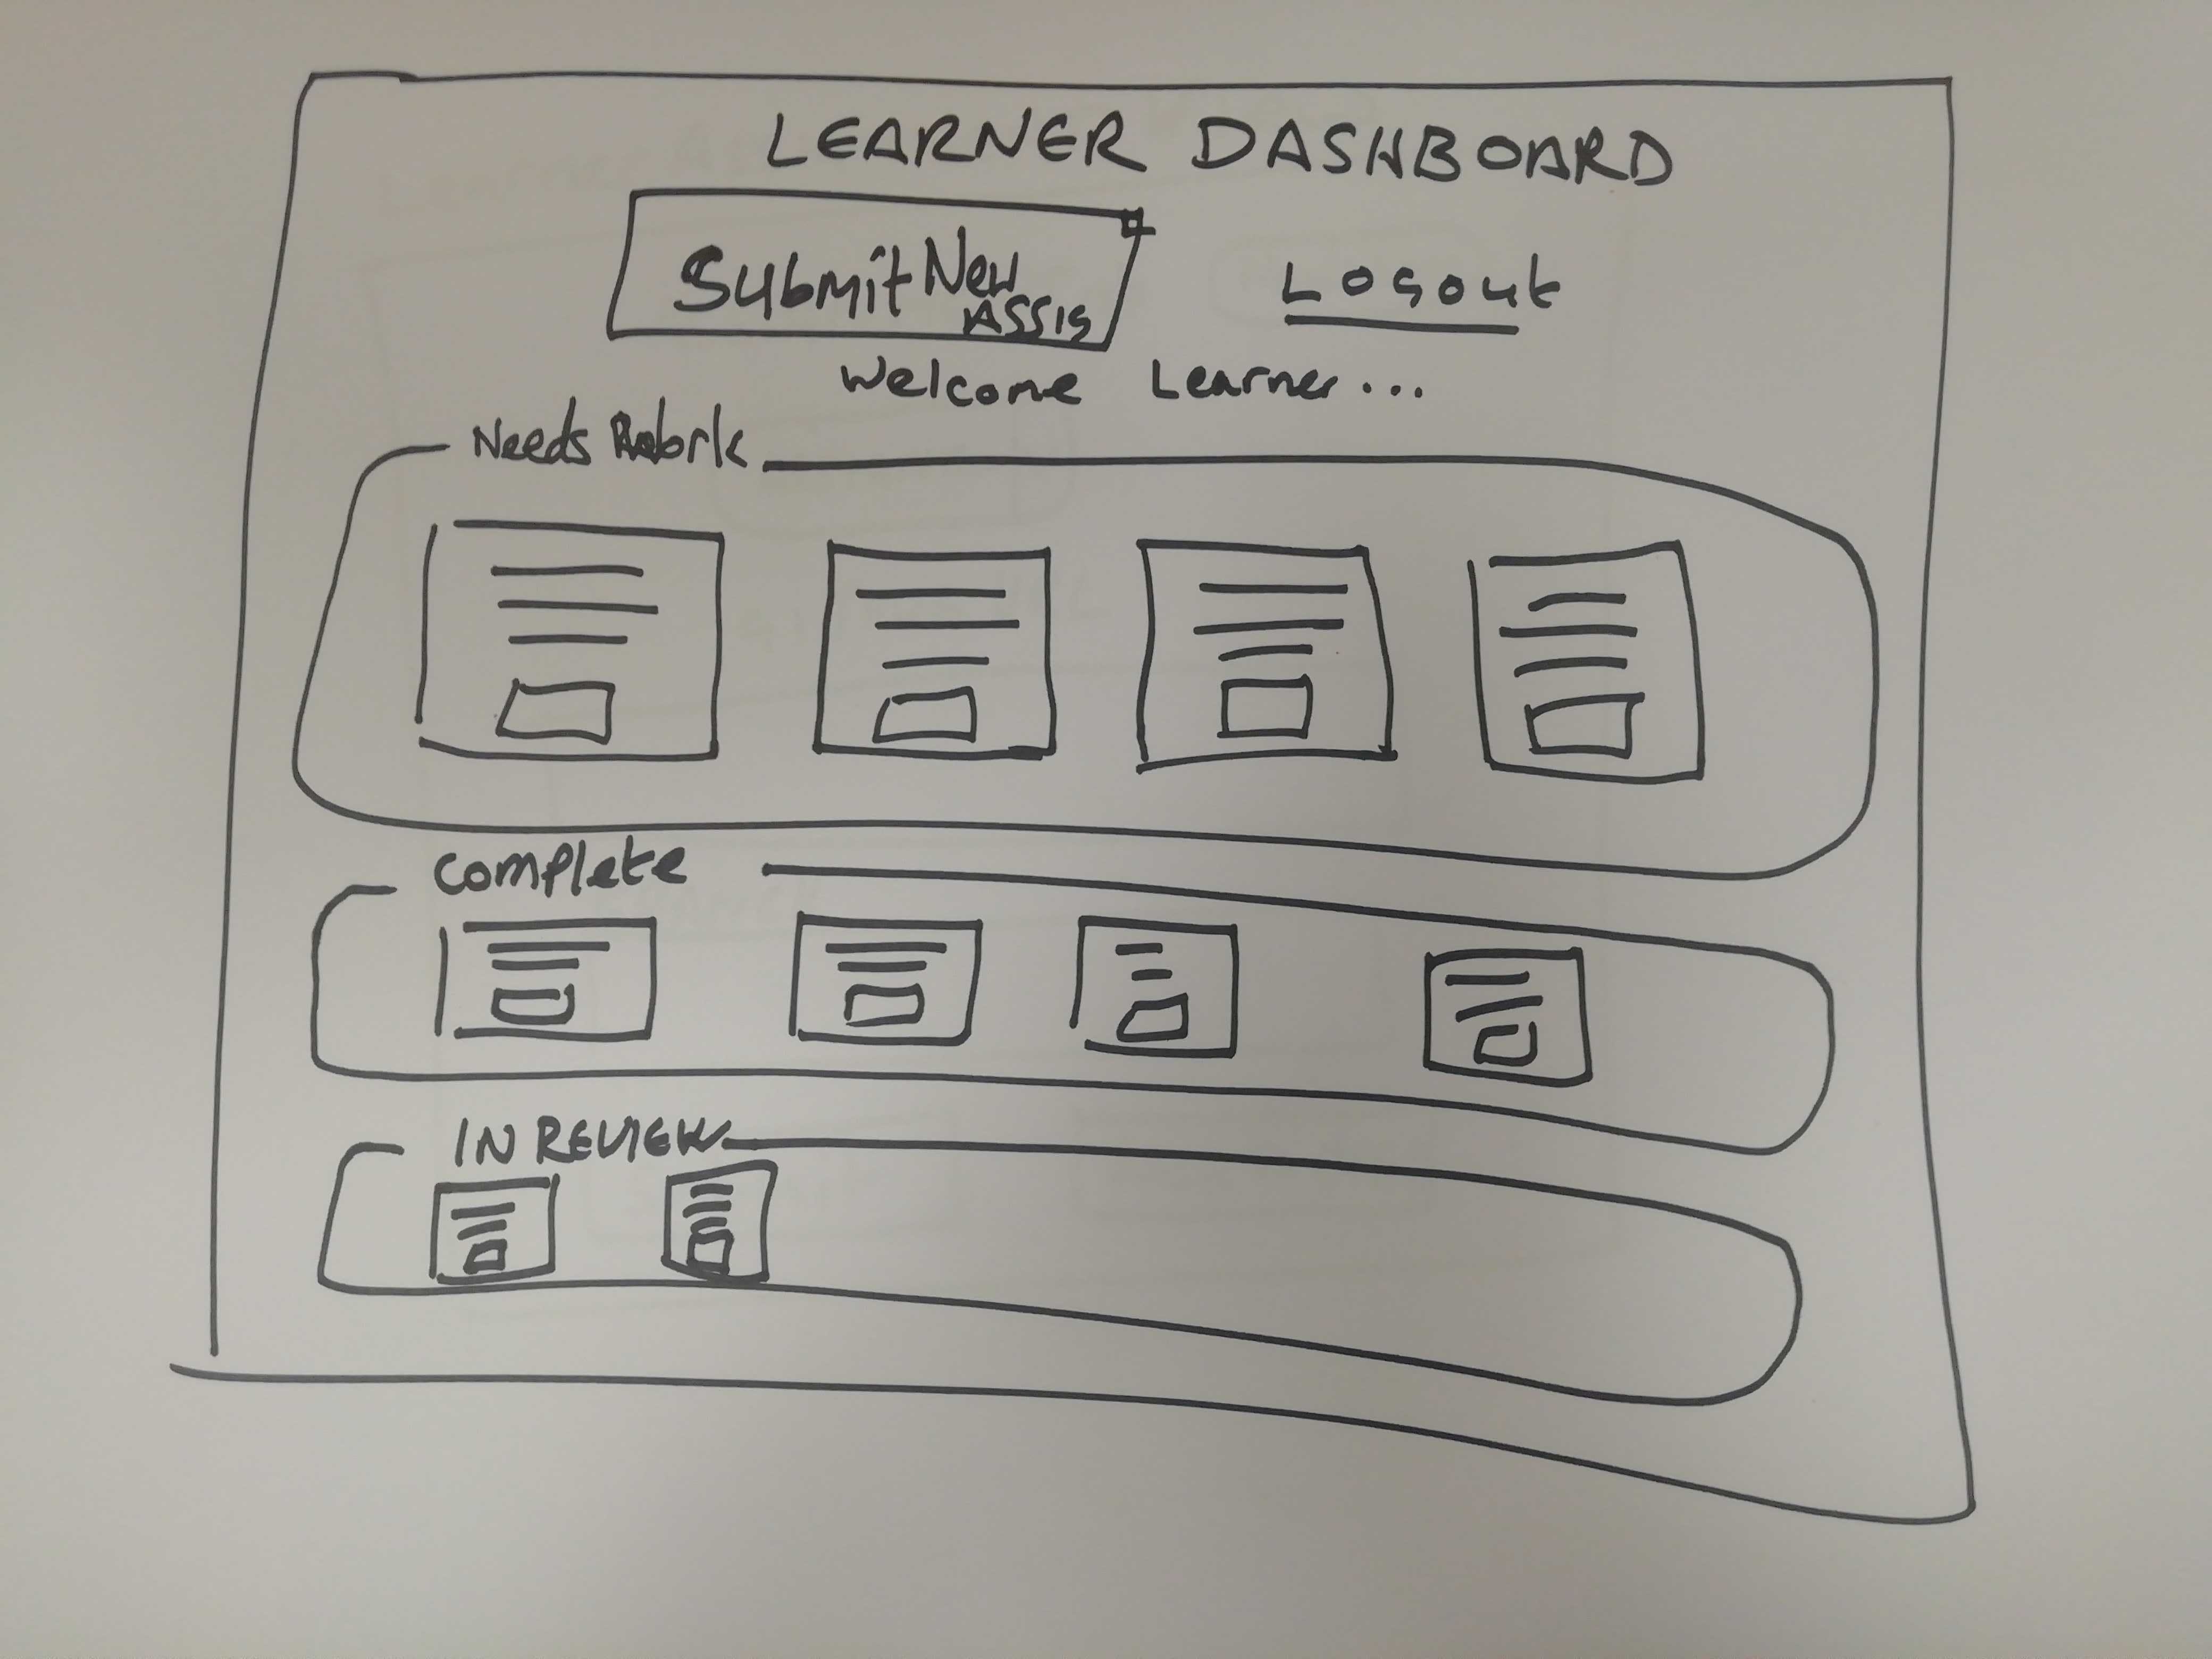 LEARNER DASHBOARD
Submit New
Assig
Logout
Welcome Learner...
Needs Rubrik
Complete
IN REVIEW